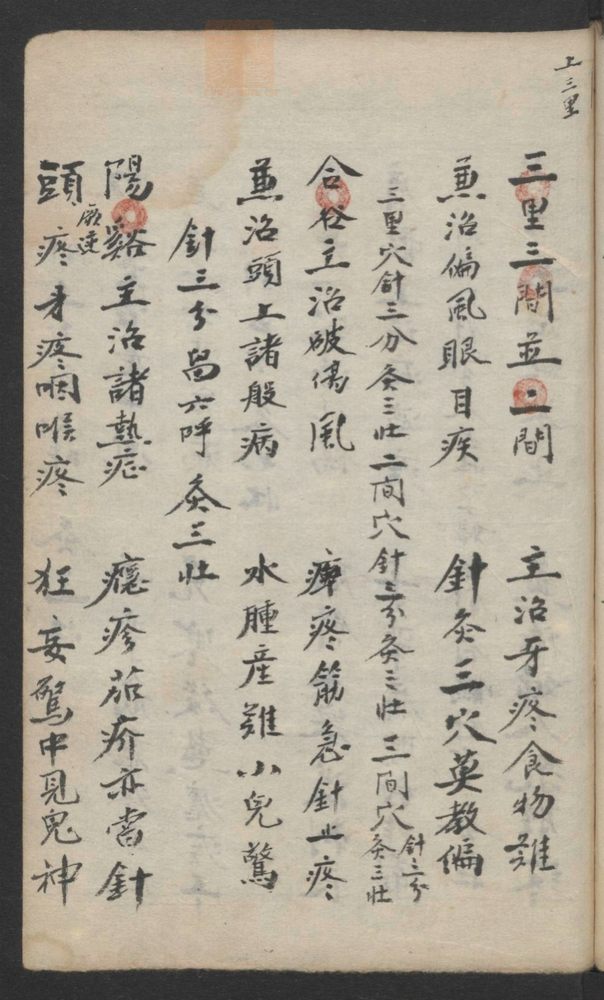 上三里
三里三間並二間　主治牙疼食物難
兼治偏風眼目疾　針灸三穴莫教偏
三里穴針三分灸三壮二间穴針三分灸三壮三间穴針三分灸三壮
合谷主治破傷風　痺疼筋急針止疼
兼治頭上諸般病　水腫産難小兒驚
針三分留六呼灸三壮
陽谿主治諸熱症　癮疹疥亦當針
頭疼牙疼咽喉疼　狂妄驚中見鬼神
厥逆